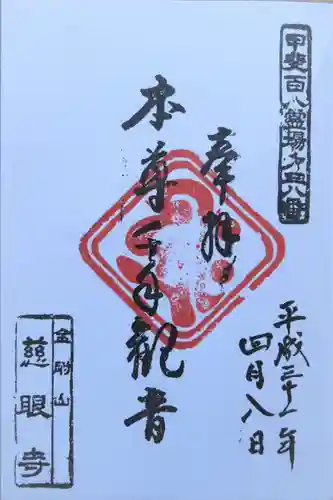 甲斐百八霊場第四八番
奉拝
本尊千手観音
平成三十一年
四月八日
金剛山
慈眼寺